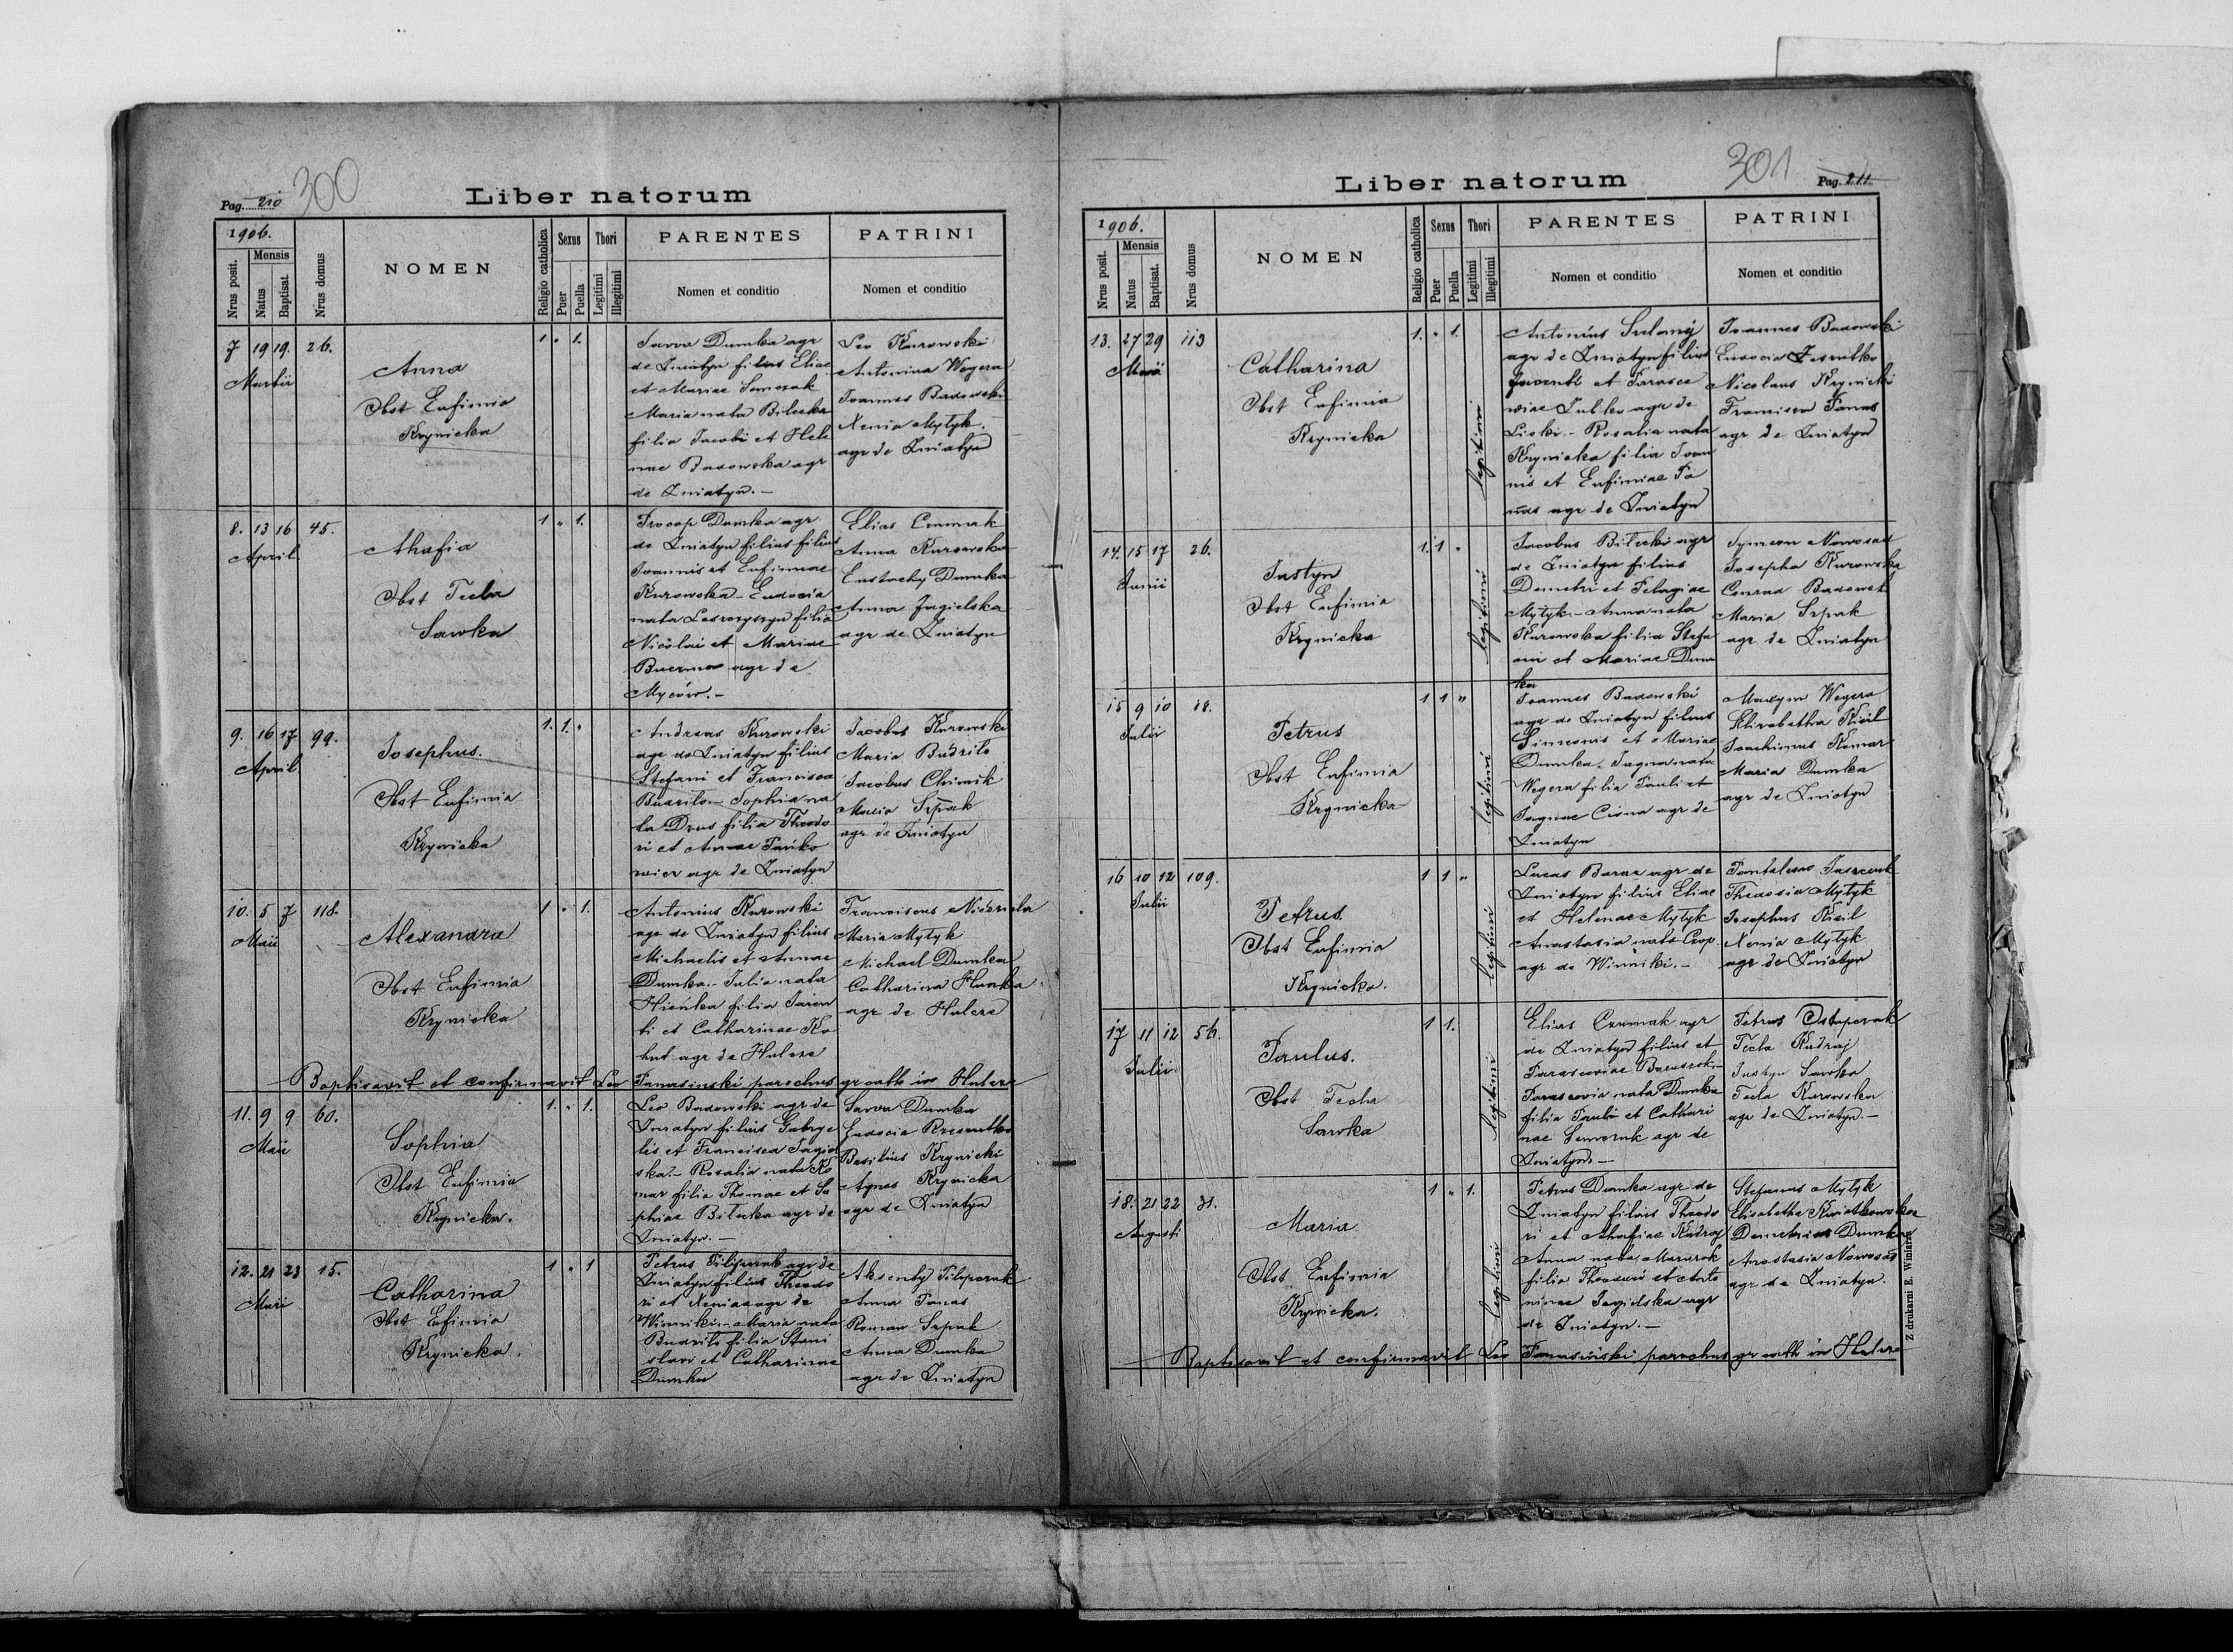 Pag. 210
300
Liber natorum
1906.
Nrus posit.
Mensis
Natus
Baptisat.
Nrus domus
NOMEN
Religio catholica
Sexus
Puer
Puella
Thori
Legitimi
Illegitimi
PARENTES
Nomen et conditio
PATRINI
Nomen et conditio
7 19 19. 26.
Martii
Anna
Obst Eufimia
Krynicka
1 " 1.
Savva Dumka agr
de Zniatyn filius Eliae
et Mariae Semerak
Maria nata Bilecka
filia Jacobi et Hele
nae Badowska agr
de Zniatyn.-
Leo Kurowski
Antonina Wegera
Joannes Badowski
Xenia Mytyk.
agr de Zniatyn
8. 13 16 45.
April
Ahafia
Obst Tecla
Sawka
1 " 1.
Procop Dumka agr
de Zniatyn filius filius
Joannis et Eufimiae
Kurowska - Eudocia
nata filia
Nicolai et Mariae
agr de
Myców.-
Elias Czumak
Anna Kurowska
Eustachy Dumka
Anna Jagielska
agr de Zniatyn
9. 16 17 99.
April
Josephus.
Obst Eufimia
Krynicka
1. 1. "
Andreas Kurowski
agr de Zniatyn filius
Stefani et Francisca
Budzilo - Sophia na
ta Drus filia Theodo
ri et Annae Panko
wicz agr de Zniatyn
Jacobus Kurowski
Maria Budzilo
Jacobus Chimik
Maria Srpak
agr de Zniatyn
10. 5 7 118.
Maii
Alexandra
Obst Eufimia
Krynicka
1 " 1.
Antonius Kurowski
agr de Zniatyn filius
Michaelis et Annae
Dumka.- Julia nata
Hieńka filia
ti et Catharinae Ko
hut agr de Hulcze
Franciscus
Maria Mytyk
Michael Dumka
Catharina
agr de Hulcze
Baptisavit et confirmavit Leo Panasinski parochus gr cath in Hulcze
11. 9 9 60.
Maii
Sophia
Obst Eufimia
Krynicka.
1. " 1.
Leo Badowski agr de
Zniatyn filius Gabrye
lis et Francisca Jagiel
ska.- Rosalia nata Ko
mar filia Thomae et So
phiae Bilecka agr de
Zniatyn.-
Savva Dumka
Eudocia
Basilius Krynicki
Agnes Krynicka
agr de Zniatyn
12. 21 23 15.
Maii
Catharina
Obst Eufimia
Krynicka.
1 " 1
Petrus Filipczuk agr de
Zniatyn filius Theodo
ri et Xeniae agr de
Winniki.- Maria nata
Budzilo filia Stani
slavi et Catharinae
Dumka
Aksenty Filipczuk
Anna Panas
Roman Srpak
Anna Dumka
agr de Zniatyn
Liber natorum
301
Pag. 211
1906.
Nrus posit.
Mensis
Natus
Baptisat.
Nrus domus
NOMEN
Religio catholica
Sexus
Puer
Puella
Thori
Legitimi
Illegitimi
PARENTES
Nomen et conditio
PATRINI
Nomen et conditio
13. 27 29 113
Maii
Catharina
Obst Eufimia
Krynicka
1. " 1.
legitimi
Antonius
agr de Zniatyn filius
et Parasce
viae agr de
Liski.- Rosalia nata
Krynicka filia Joan
nis et Eufimiae Pa
nas agr de Zniatyn
Joannes Badowski
Eudocia
Nicolaus Krynicki
Francisca Panas
agr de Zniatyn
14. 15 17 26.
Junii
Justyn
Obst Eufimia
Krynicka
1. 1 "
legitimi
Jacobus Bilecki agr
de Zniatyn filius
Demetri et Pelagiae
Mytyk - Anna nata
Kurowska filia Stefa
ni et Mariae Dum
ka
Symeon Nowosad
Josepha Kurowska
Conrad Badowski
Maria Srpak
agr de Zniatyn
15 9 10 18.
Julii
Petrus
Obst Eufimia
Krynicka
1 1 "
legitimi
Joannes Badowski
agr de Zniatyn filius
Simeonis et Mariae
Dumka. Jagna nata
Wegera filia Pauli et
Jagnae Cisna agr de
Zniatyn
Maxym Wegera
Elisabetha Kisil
Joachimus Komar
Maria Dumka
agr de Zniatyn
16 10 12 109.
Julii
Petrus.
Obst Eufimia
Krynicka.
1 1 "
legitimi
Lucas Baran agr de
Zniatyn filius Eliae
et Helenae Mytyk
Anastasia nata Czop
agr de Winniki.-
Thedosia Mytyk
Josephus Kisil
Xenia Mytyk
agr de Zniatyn
17 11 12 56.
Julii
Paulus.
Obst Tecla
Sawka
1 1.
legitimi
Elias Czumak agr
de Zniatyn filius et
Parasceviae
Parascevia nata Dumka
filia Pauli et Cathari
nae Semerak agr de
Zniatyn.-
Petrus Ostapczuk
Tecla Kudraj
Justyn Sawka
Tecla Kurowska
agr de Zniatyn.-
18. 21 22 31.
Augusti
Maria
Obst Eufimia
Krynicka.
1 " 1.
legitimi
Petrus Dumka agr de
Zniatyn filius Theodo
ri et Ahafiae Kudraj
Anna nata
filia Theodori et Anto
ninae Jagielska agr
de Zniatyn.-
Stefanus Mytyk
Elisabetha Kwiatkowska
Demetrius Dumka
Anastasia Nowosad
agr de Zniatyn.
Baptisavit et confirmavit Leo Panasiński parochus gr cath in Hulcze
Z drukarni E. Winiarza